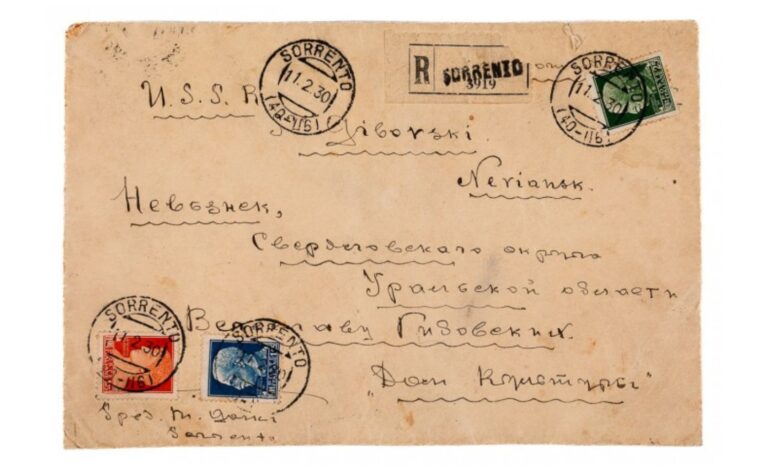 SORRENTO
11.2.30
(40-116)
R SORRENTO
3919
SORRENTO
11.2.30
(40-116)
U.S.S.R.
Neviansk.
Невьянск,
Свердловского округа
Уральской области
"Дом Культуры"
SORRENTO
11.2.30
(40-116)
SORRENTO
Sped. M. Gorki
Sorrento